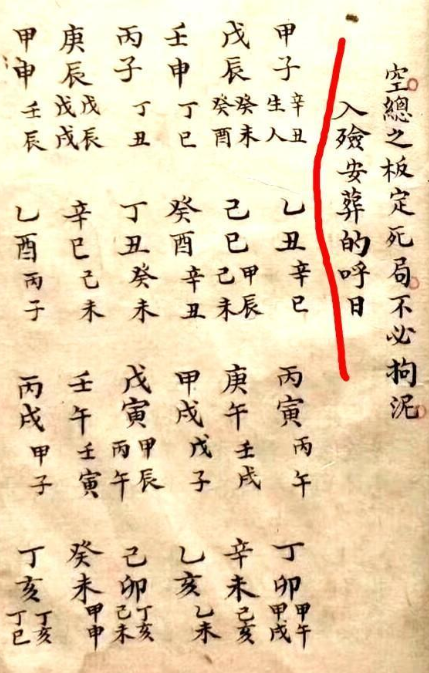 空總之板定死局不必拘泥
入殮安葬的呼日
甲子 辛丑生人 乙丑 辛巳 丙寅 丙午 丁卯 甲午甲戌
戊辰 癸未癸酉 己巳 甲辰己未 庚午 壬戌 辛未 己亥
壬申 丁巳 癸酉 辛丑 甲戌 戊子 乙亥 乙未
丙子 丁丑 丁丑 癸未 戊寅 甲辰丙午 己卯 丁亥己未
庚辰 戊辰戊戌 辛巳 己未 壬午 壬寅 癸未 甲申
甲申 壬辰 乙酉 丙子 丙戌 甲子 丁亥 丁亥丁巳